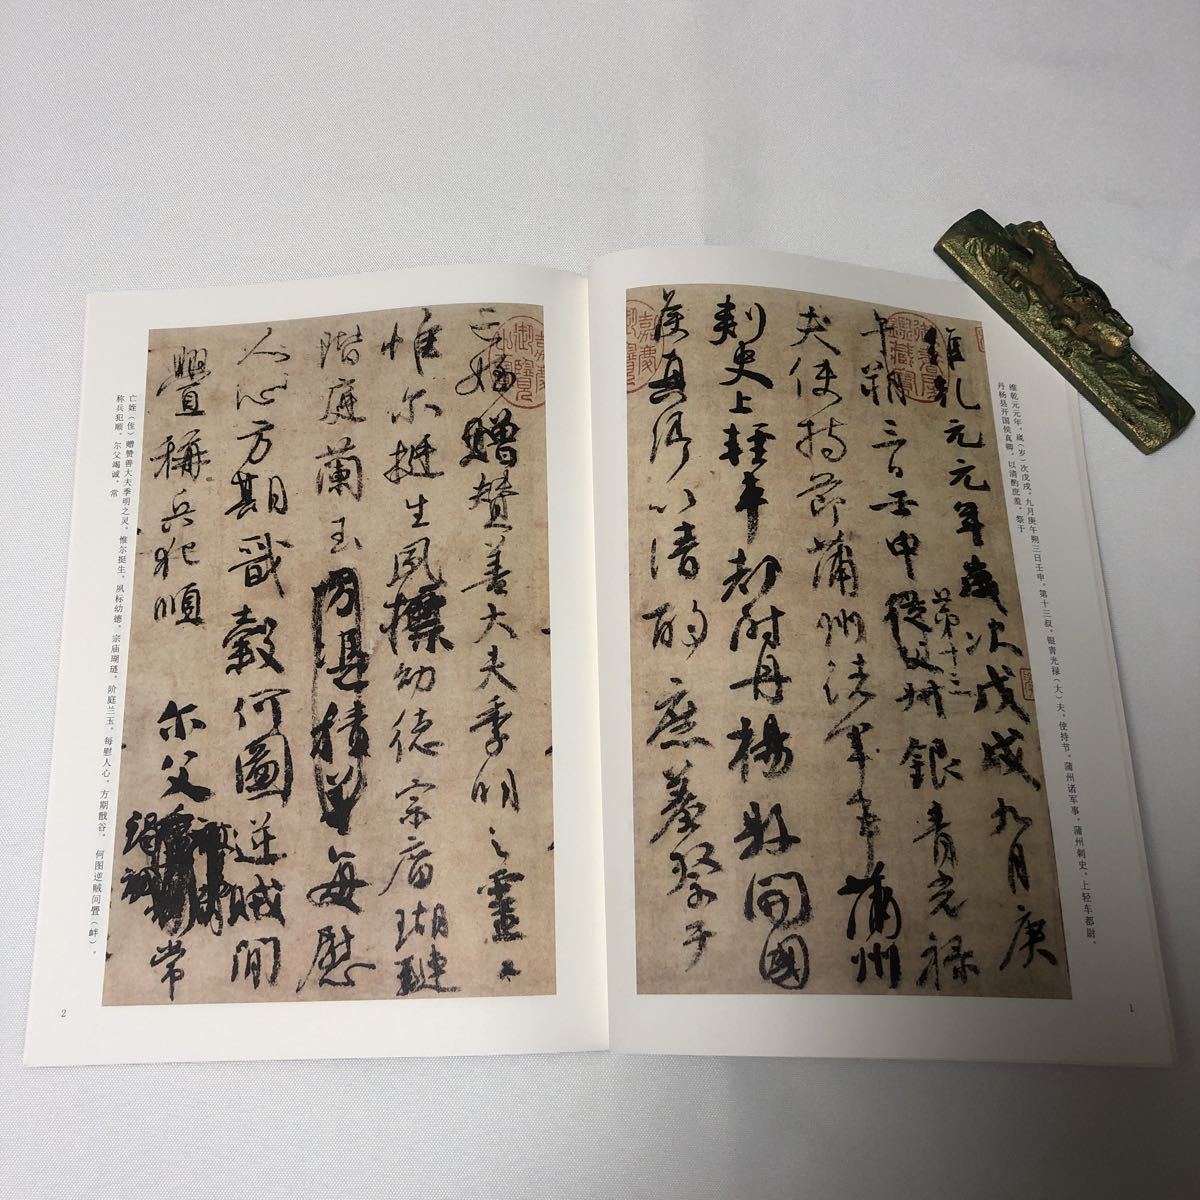 維乾元元年歲次戊戌九月庚
午朔三日壬申第十三從父叔銀青光祿
夫使持節蒲州諸軍事蒲州
刺史上輕車都尉丹楊縣開國
侯真卿以清酌庶羞祭于
维乾元元年，歲（岁）次戊戌，九月庚午朔三日壬申，第十三叔，银青光禄（大）夫，使持节，蒲州诸军事，蒲州刺史，上轻车都尉，
丹杨县开国侯真卿，以清酌庶羞，祭于
1
亡姪贈贊善大夫季明之靈
惟尔挺生夙標幼德宗廟瑚璉
階庭蘭玉方憑積善每慰
人心方期戩穀何圖逆賊閒
舋稱兵犯順尔父竭誠常
亡姪（侄）赠赞善大夫季明之灵，惟尔挺生，夙标幼德。宗庙瑚琏，阶庭兰玉，每慰人心。方期戬谷，何图逆贼间舋（衅）。
称兵犯顺。尔父竭诚，常
2